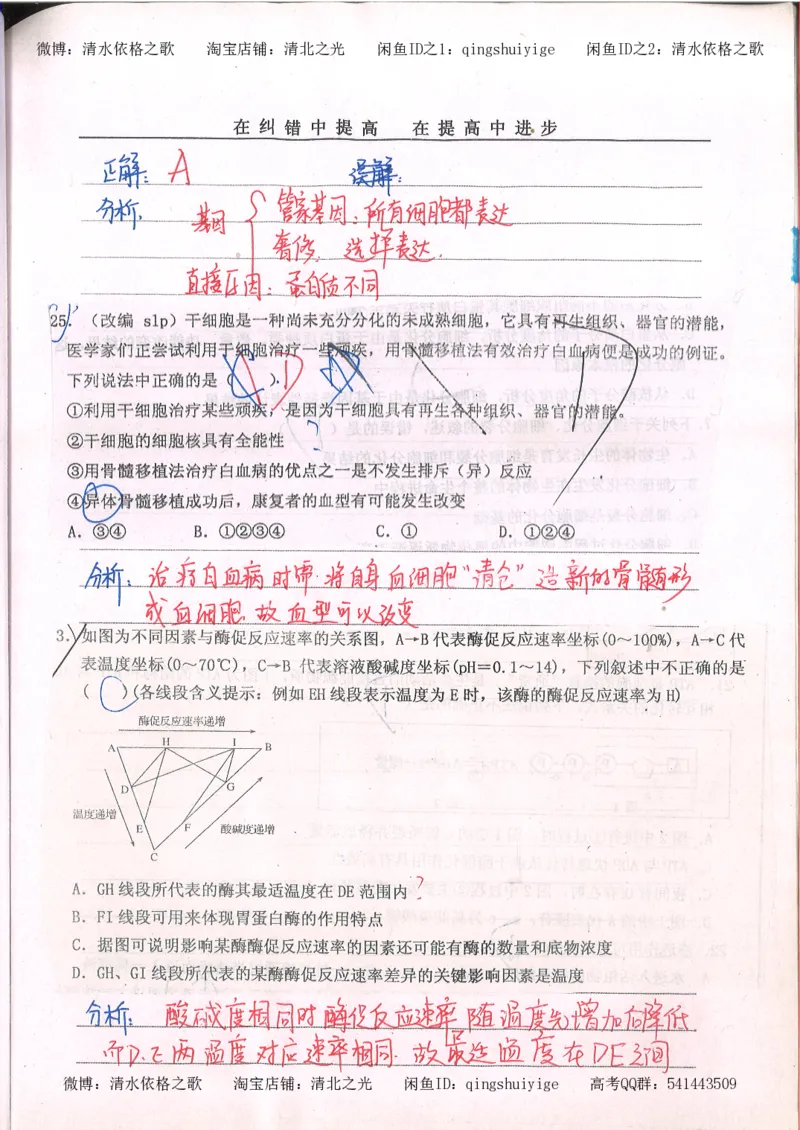 微博：清水依格之歌 淘宝店铺：清北之光 闲鱼ID之1：qingshuiyige 闲鱼ID之2：清水依格之歌
在纠错中提高 在提高中进步
正解：A 误解：
分析： 基因 { 管家基因：所有细胞都表达
奢侈 选择表达.
直接原因：蛋白质不同
25. （改编 slp）干细胞是一种尚未充分分化的未成熟细胞，它具有再生组织、器官的潜能，
医学家们正尝试利用干细胞治疗一些顽疾，用骨髓移植法有效治疗白血病便是成功的例证。
下列说法中正确的是（ D ）
①利用干细胞治疗某些顽疾，是因为干细胞具有再生各种组织、器官的潜能。
②干细胞的细胞核具有全能性 ?
③用骨髓移植法治疗白血病的优点之一是不发生排斥（异）反应
④异体骨髓移植成功后，康复者的血型有可能发生改变
A．③④ B．①②③④ C．① D．①②④
分析：治疗白血病时需 将自身血细胞“清仓”造新的骨髓形
成血细胞 故血型可以改变
3. 如图为不同因素与酶促反应速率的关系图，A→B代表酶促反应速率坐标(0～100%)，A→C代
表温度坐标(0～70℃)，C→B 代表溶液酸碱度坐标(pH＝0.1～14)，下列叙述中不正确的是
（ ）(各线段含义提示：例如EH线段表示温度为E时，该酶的酶促反应速率为H)
酶促反应速率递增
A H I B
D G
温度递增
E F 酸碱度递增
C
A．GH线段所代表的酶其最适温度在DE范围内 ?
B．FI线段可用来体现胃蛋白酶的作用特点
C．据图可说明影响某酶酶促反应速率的因素还可能有酶的数量和底物浓度
D．GH、GI线段所代表的某酶酶促反应速率差异的关键影响因素是温度
分析： 酸碱度相同时酶促反应速率随温度先增加后降低
而D.E两温度对应速率相同. 故最适温度在DE之间
微博：清水依格之歌 淘宝店铺：清北之光 闲鱼ID：qingshuiyige 高考QQ群：541443509